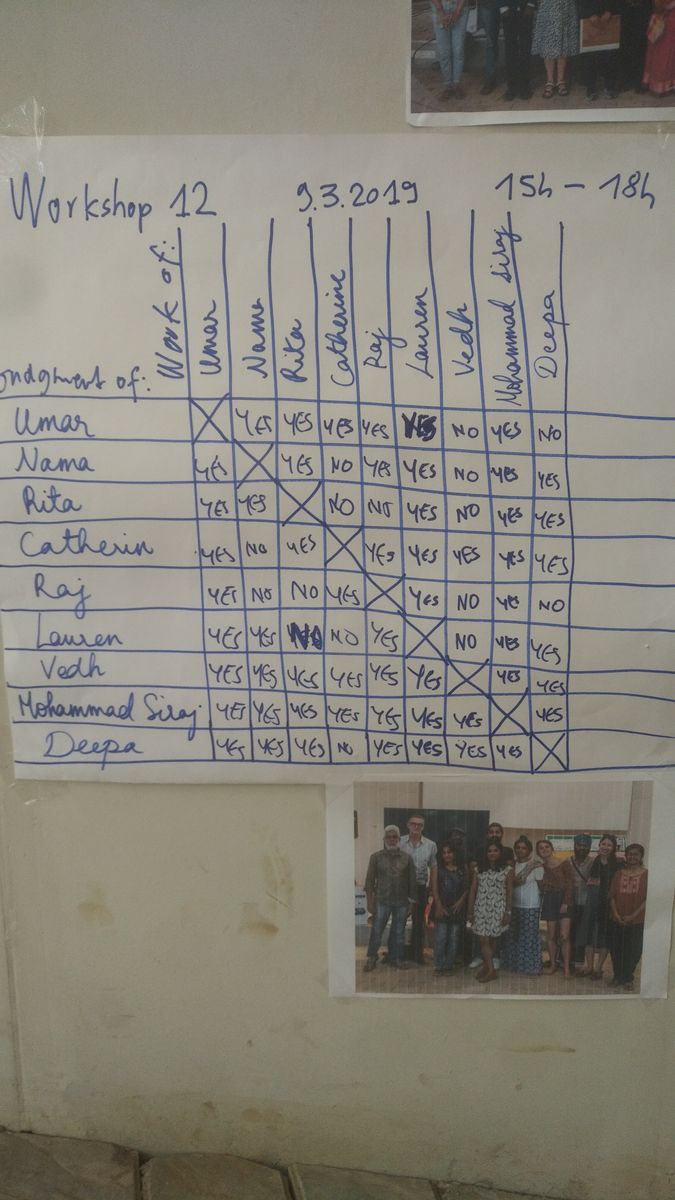 Workshop 12 9.3.2019 15h - 18h
Work of: Umar Nama Rita Catherine Raj Lauren Vedh Mohammad Siraj Deepa
of:
Umar X YES YES YES YES YES NO YES NO
Nama YES X YES NO YES YES NO YES YES
Rita YES YES X NO NO YES NO YES YES
Catherin YES NO YES X YES YES YES YES YES
Raj YES NO NO YES X YES NO YES NO
Lauren YES YES NO NO YES X NO YES YES
Vedh YES YES YES YES YES YES X YES YES
Mohammad Siraj YES YES YES YES YES YES YES X YES
Deepa YES YES YES NO YES YES YES YES X